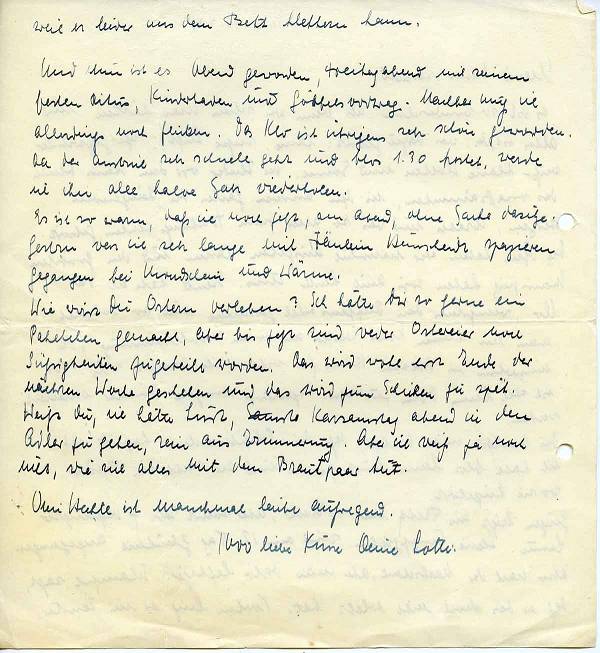 weil er leider aus dem Bett klettern kann.
Und nun ist es Abend geworden, Freitagabend mit seinem
festen Ritus, Kinderbaden und Göbbelsvortrag. Nachher muß ich
allerdings noch flicken. Das Klo ist übrigens sehr schön geworden.
Da der Anstrich sehr schnell geht und blos 1.30 kostet, werde
ich ihn alle halbe Jahr wiederholen.
Es ist so warm, daß ich noch jetzt, am Abend, ohne Jacke dasitze.
Gestern war ich sehr lange mit Fräulein spazieren
gegangen bei Mondschein und Wärme.
Wie wirst Du Ostern verleben? Ich hätte Dir so gerne ein
Paketchen gemacht, aber bis jetzt sind weder Ostereier noch
Süßigkeiten zugeteilt worden. Das wird wohl erst Ende der
nächsten Woche geschehen und das wird zum Schicken zu spät.
Weißt du, ich hätte Lust, Karsamstag abend in den
Adler zu gehen, rein aus Erinnerung. Aber ich weiß ja noch
nicht, wie sich alles mit dem Brautpaar tut.
ist manchmal leicht aufregend.
1000 liebe Küsse Deine Lotte.